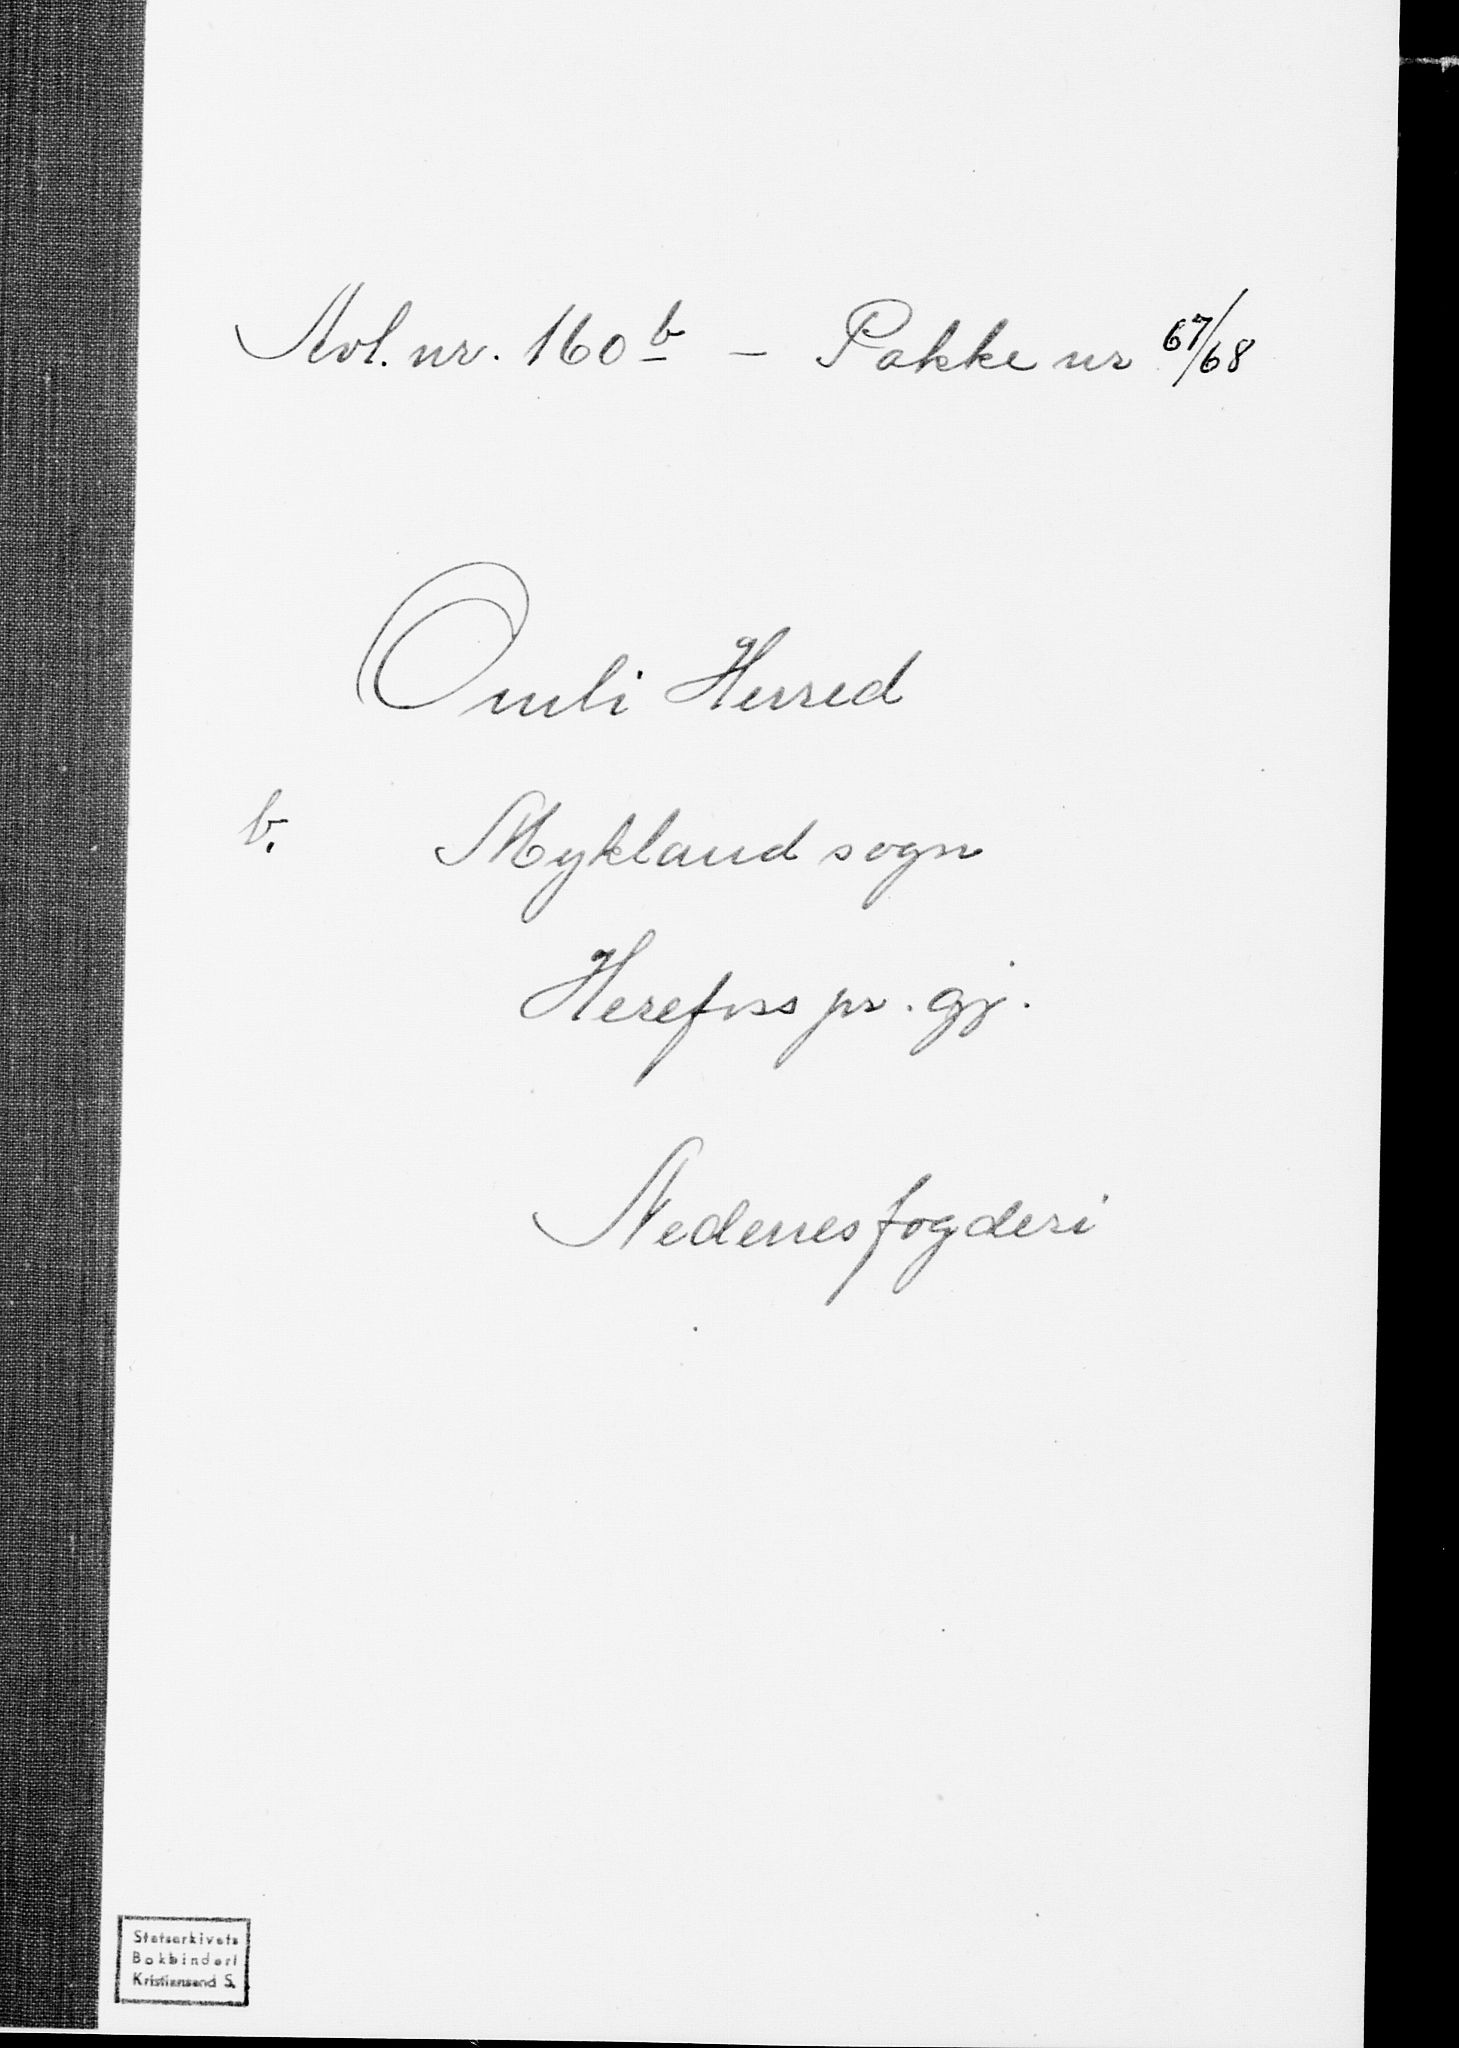 Avl. nr. 160 b - Pakke nr 67/68
Omli Herred
b. Mykland sogn
Herefoss pr. gj.
Nedenes fogderi
Statsarkivets
Bokbinderi
Kristiansand S.